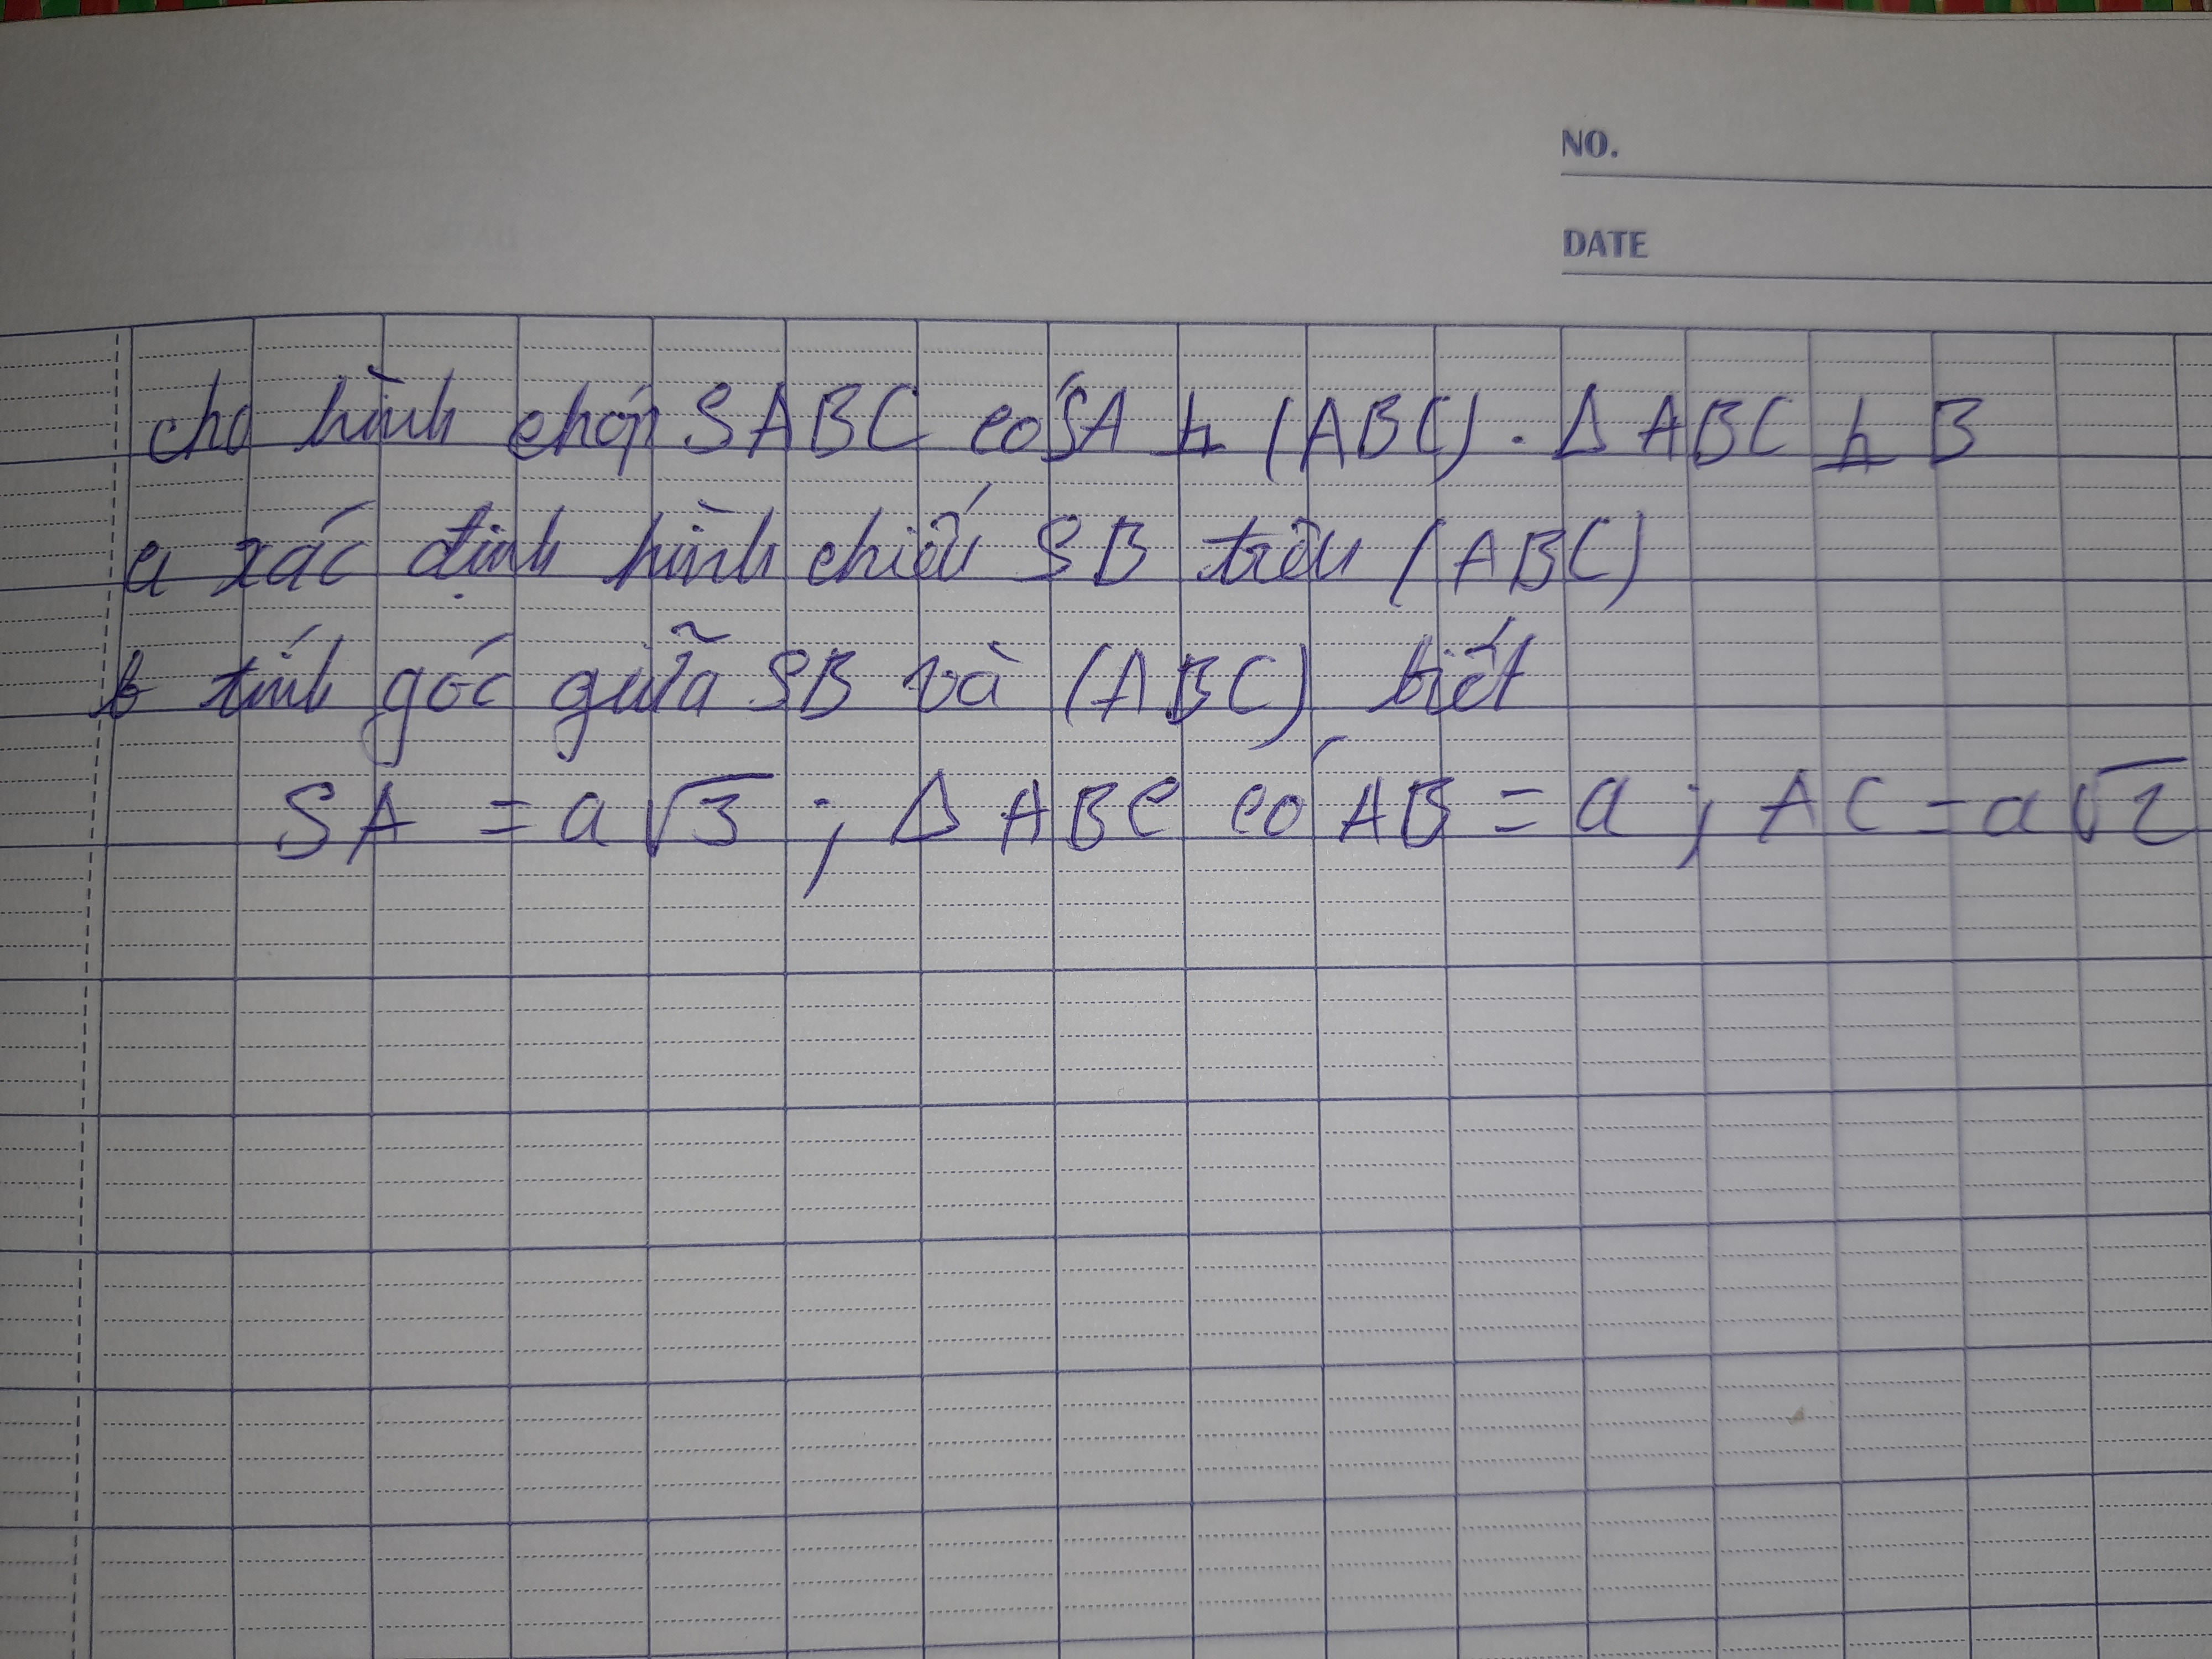 NO.
DATE
cho hình chóp SABC có SA ⊥ (ABC). Δ ABC ⊥ B
a xác định hình chiếu SB trên (ABC)
b tính góc giữa SB và (ABC) biết
SA = a√3 ; Δ ABC có AB = a ; AC = a√2